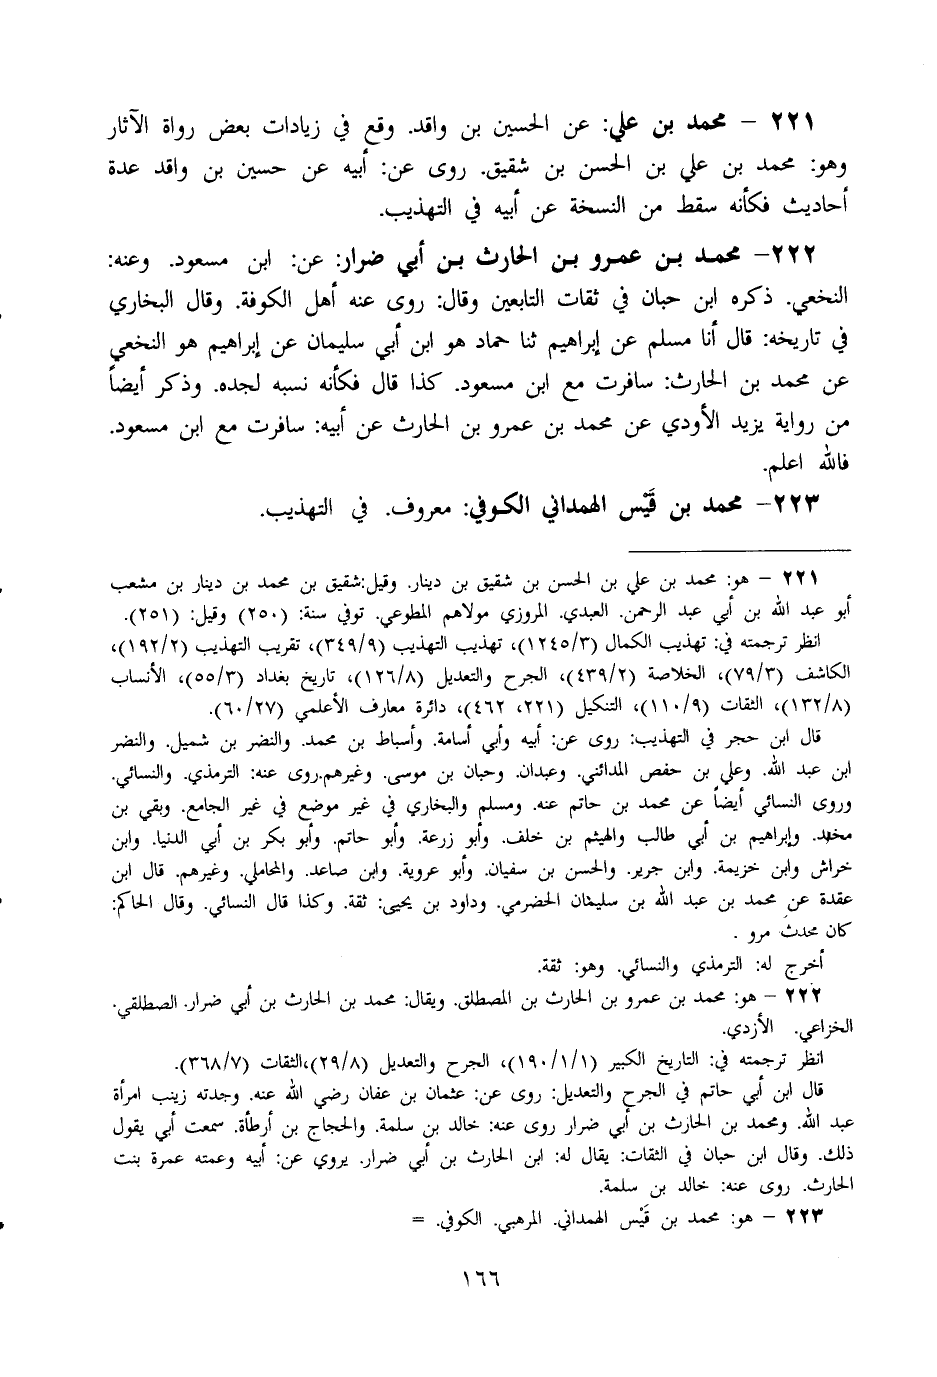 ٢٢١ – محمد بن علي: عن الحسين بن واقد. وقع في زيادات بعض رواة الآثار
وهو: محمد بن علي بن الحسن بن شقيق. روى عن: أبيه عن حسين بن واقد عدة
أحاديث فكأنه سقط من النسخة عن أبيه في التهذيب.
٢٢٢– محمد بن عمرو بن الحارث بن أبي ضرار: عن: ابن مسعود. وعنه:
النخعي. ذكره ابن حبان في ثقات التابعين وقال: روى عنه أهل الكوفة. وقال البخاري
في تاريخه: قال أنا مسلم عن إبراهيم ثنا حماد هو ابن أبي سليمان عن إبراهيم هو النخعي
عن محمد بن الحارث: سافرت مع ابن مسعود. كذا قال فكأنه نسبه لجده. وذكر أيضاً
من رواية يزيد الأودي عن محمد بن عمرو بن الحارث عن أبيه: سافرت مع ابن مسعود.
فالله اعلم.
٢٢٣– محمد بن قَيْس الهمداني الكوفي: معروف. في التهذيب.
٢٢١ – هو: محمد بن علي بن الحسن بن شقيق بن دينار. وقيل:شقيق بن محمد بن دينار بن مشعب
أبو عبد الله بن أبي عبد الرحمن. العبدي. المروزي مولاهم المطوعي. توفي سنة: (٢٥٠) وقيل: (٢٥١).
انظر ترجمته في: تهذيب الكمال (١٢٤٥/٣)، تهذيب التهذيب (٣٤٩/٩)، تقريب التهذيب (١٩٢/٢)،
الكاشف (٧٩/٣)، الخلاصة (٤٣٩/٢)، الجرح والتعديل (١٢٦/٨)، تاريخ بغداد (٥٥/٣)، الأنساب
(١٣٢/٨)، الثقات (١١٠/٩)، التنكيل (٢٢١، ٤٦٢)، دائرة معارف الأعلمي (٦٠/٢٧).
قال ابن حجر في التهذيب: روى عن: أبيه وأبي أسامة. وأسباط بن محمد. والنضر بن شميل. والنضر
ابن عبد الله. وعلي بن حفص المدائني. وعبدان. وحبان بن موسى. وغيرهم.روى عنه: الترمذي. والنسائي.
وروى النسائي أيضاً عن محمد بن حاتم عنه. ومسلم والبخاري في غير موضع في غير الجامع. وبقي بن
مخلد. وإبراهيم بن أبي طالب والهيثم بن خلف. وأبو زرعة. وأبو حاتم. وأبو بكر بن أبي الدنيا. وابن
خراش وابن خزيمة. وابن جرير. والحسن بن سفيان. وأبو عروبة. وابن صاعد. والمحاملي. وغيرهم. قال ابن
عقدة عن محمد بن عبد الله بن سليمان الحضرمي. وداود بن يحيى: ثقة. وكذا قال النسائي. وقال الحاكم:
كان محدث مرو .
أخرج له: الترمذي والنسائي. وهو: ثقة.
٢٢٢ – هو: محمد بن عمرو بن الحارث بن المصطلق. ويقال: محمد بن الحارث بن أبي ضرار. الصطلقي.
الخزاعي. الأزدي.
انظر ترجمته في: التاريخ الكبير (١٩٠/١/١)، الجرح والتعديل (٢٩/٨)،الثقات (٣٦٨/٧).
قال ابن أبي حاتم في الجرح والتعديل: روى عن: عثمان بن عفان رضي الله عنه. وجدته زينب امرأة
عبد الله. ومحمد بن الحارث بن أبي ضرار روى عنه: خالد بن سلمة. والحجاج بن أرطأة. سمعت أبي يقول
ذلك. وقال ابن حبان في الثقات: يقال له: ابن الحارث بن أبي ضرار. يروي عن: أبيه وعمته عمرة بنت
الحارث. روى عنه: خالد بن سلمة.
٢٢٣ – هو: محمد بن قَيْس الهمداني. المرهبي. الكوفي. =
١٦٦